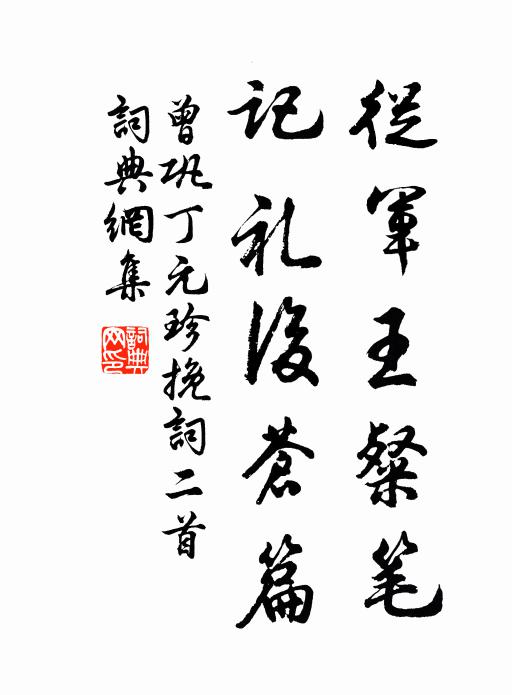 從軍王粲笔
記礼後蒼篇
曾巩丁元珍挽詞二首
詞典網集
詞典网印